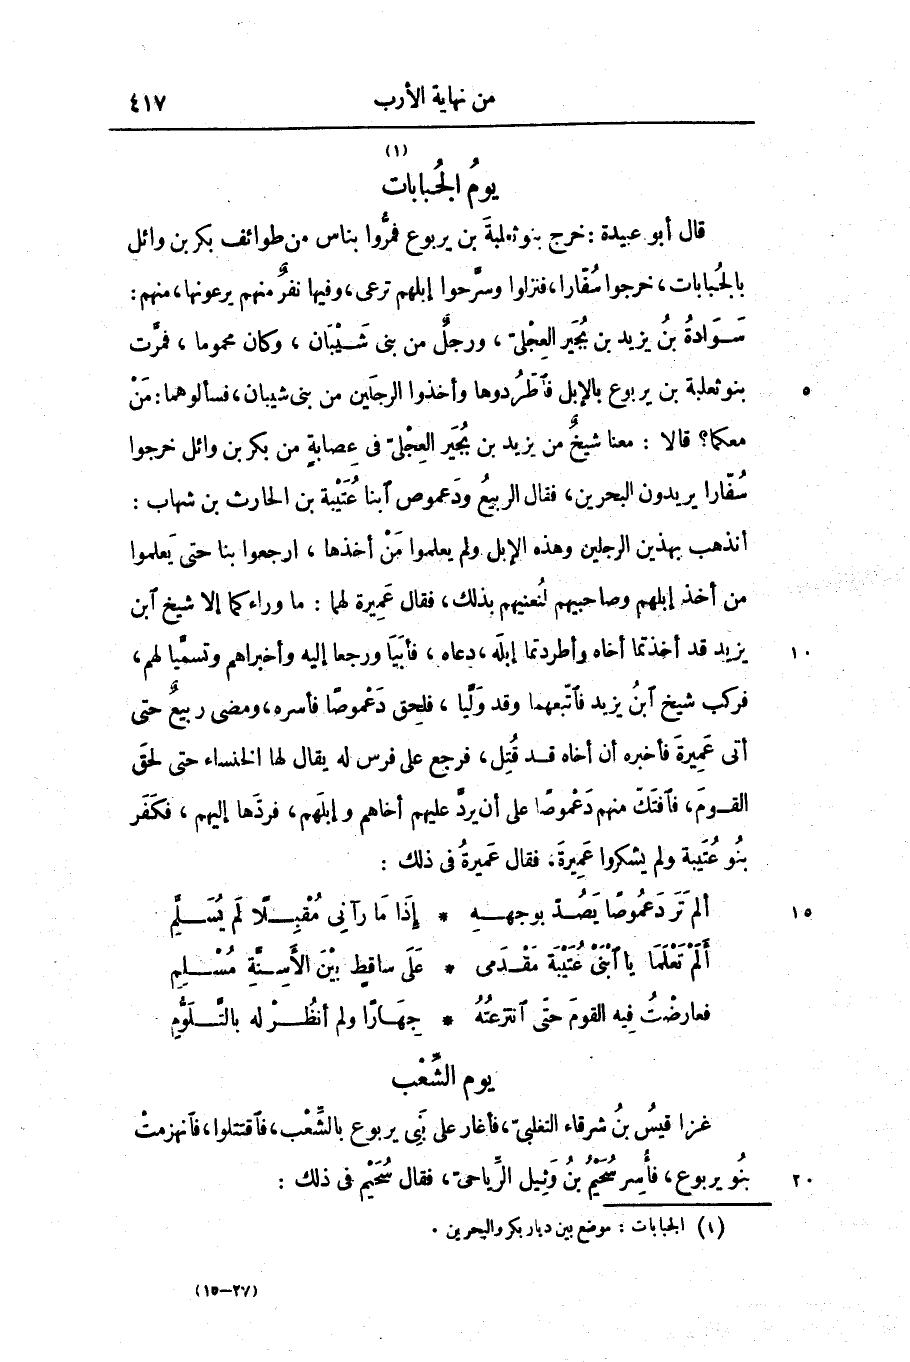 من نهاية الأرب ٤١٧
(١)
يومُ الجُبابات
قال أبو عبيدة : خرج بنو ثعلبةَ بن يربوع فمرُّوا بناس من طوائف بكر بن وائل
بالجُبابات، خرجوا سُفّارا، فنزلوا وسرَّحوا إبلهم ترعى، وفيها نفرٌ منهم يرعونها، منهم :
سَوَادةُ بنُ يزيد بن بُجَير العِجْلىّ ، ورجلٌ من بنى شَيْبَان ، وكان محموما ، فمرَّت
بنو ثعلبة بن يربوع بالإبل فٱطّردوها وأخذوا الرجلَين من بنى شيبان، فسألوهما : مَنْ ٥
معكما؟ قالا : معنا شيخٌ من يزيد بن بُجَير العِجْلىّ فى عِصابةٍ من بكر بن وائل خرجوا
سُفّارا يريدون البحرين، فقال الربيعُ ودَعموص ٱبنا عُتَيْبة بن الحارث بن شهاب :
أنذهب بهذين الرجلين وهذه الإبل ولم يعلموا مَنْ أخذها ، ارجعوا بنا حتى يَعلموا
من أخذ إبلهم وصاحبيهم لنُعنيهم بذلك، فقال عَمِيرة لهما : ما وراءكما إلا شيخ ٱبن
يزيد قد أخذتما أخاه وأطردتما إبلَه، دعاه ، فأبَيَا ورجعا إليه وأخبراهم وتسمَّيا لهم، ١٠
فركب شيخ ٱبنُ يزيد فٱتّبعهما وقد وَلَّيا ، فلحِق دَعْموصًا فأسره، ومضى ربيعٌ حتى
أتى عَمِيرةَ فأخبره أن أخاه قد قُتِل، فرجع على فرس له يقال لها الخنساء حتى لحقَ
القومَ، فٱفتَكّ منهم دَعْموصًا على أن يردَّ عليهم أخاهم وإبلَهم، فردّها إليهم ، فكَفَر
بنُو عُتَيبة ولم يشكروا عَمِيرةَ، فقال عَمِيرةُ فى ذلك :
ألم تَر دَعمُوصًا يَصُدّ بوجهه * إِذَا مَا رآنِى مُقْبِلًا لَم يُسَلَّمِ ١٥
أَلَمْ تَعْلَمَا يا ٱبْنَىْ عُتَيْبَة مَقْدَمى * عَلَى ساقطٍ بيْنَ الأَسِنَّةِ مُسْلِمِ
فعارضْتُ فِيه القومَ حتّى ٱنتزعتُهُ * جِهَارًا ولم أنظُرْ له بالتَّلَوُّمِ
يوم الشِّعْب
غزا قيسُ بنُ شرقاء التغلبىّ، فأغار على بَنِى يربوع بالشِّعْب، فٱقتتلوا، فٱنهزمتْ
بنُو يربوع، فأُسِر سُحَيْمُ بنُ وَثِيل الرِّياحىّ، فقال سُحَيْم فى ذلك : ٢٠
(١) الجبابات : موضع بين ديار بكر والبحرين .
(٢٧-١٥)